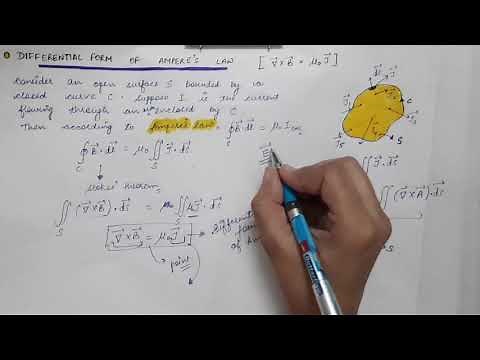 DIFFERENTIAL FORM OF AMPERE'S LAW [∇⃗×B⃗ = μ₀J⃗]
Consider an open surface S bounded by a
closed curve C. Suppose I is the current
flowing through an enclosed by C
Then according to Ampere's law, ∮B⃗.dl⃗ = μ₀ I enc
∮_C B⃗.dl⃗ = μ₀ ∬_S J⃗.ds⃗
Stoke's theorem
∬_S (∇⃗×B⃗).ds⃗ = μ₀ ∬_S J⃗.ds⃗
∇⃗×B⃗ = μ₀J⃗
point
form
of
dl⃗
C
S
∬ J⃗.ds⃗
∬_S (∇⃗×A⃗).ds⃗